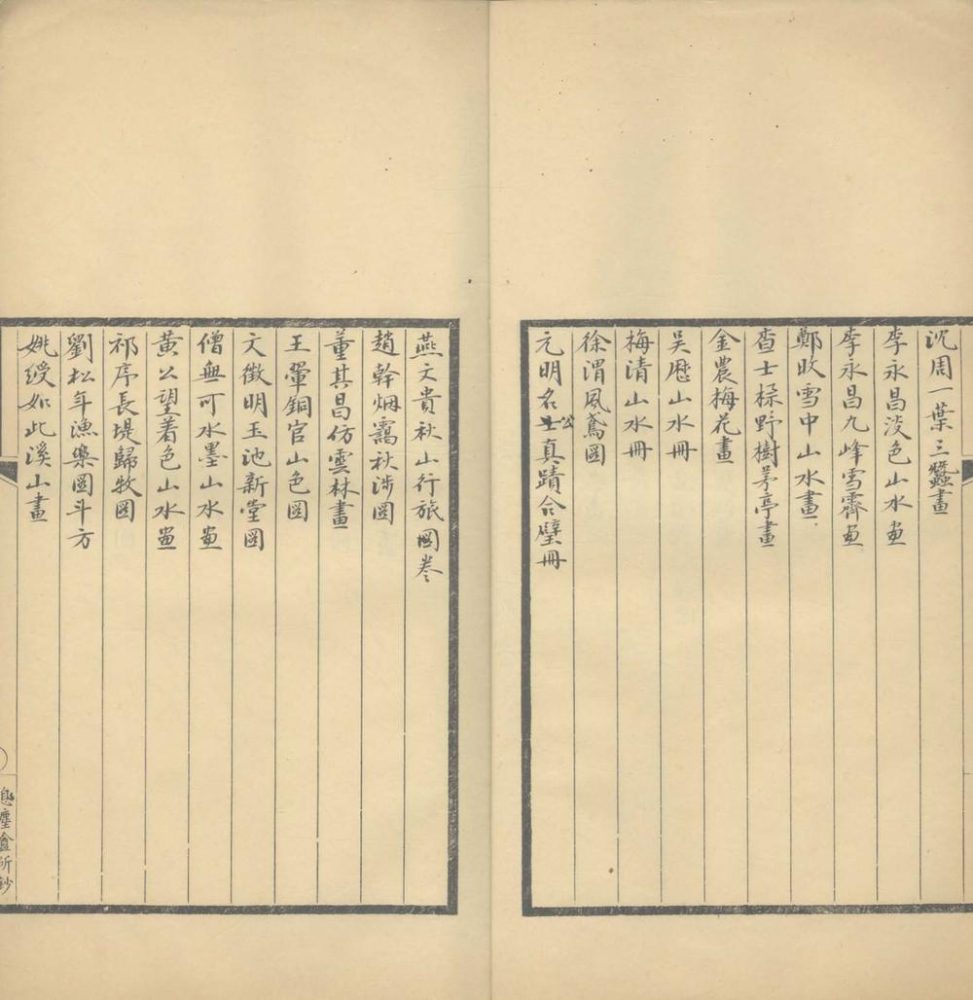 沈周一葉三蠶畫
李永昌淡色山水畫
李永昌九峰雪霽畫
鄭旼雪中山水畫
查士標野樹茅亭畫
金農梅花畫
吳歷山水冊
梅清山水冊
徐渭風鳶圖
元明名公真蹟合璧冊
燕文貴秋山行旅圖卷
趙幹烟靄秋涉圖
董其昌仿雲林畫
王翬銅官山色圖
文徵明玉池新堂圖
僧無可水墨山水畫
黃公望着色山水畫
祁序長堤歸牧圖
劉松年漁樂圖斗方
姚綬如此溪山畫
息塵盦所鈔